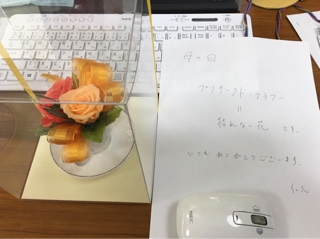 母の日
プリザーブドフラワー
=
枯れない花 です。
いつもありがとうございます。
NEC